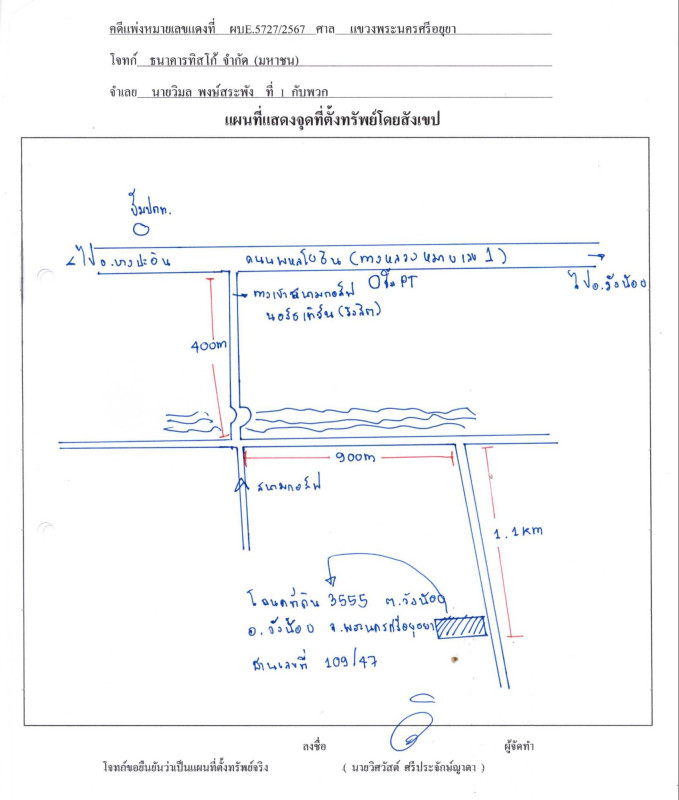 คดีแพ่งหมายเลขแดงที่ ผบE.5727/2567 ศาล แขวงพระนครศรีอยุธยา
โจทก์ ธนาคารทิสโก้ จำกัด (มหาชน)
จำเลย นายวิมล พงษ์สระพัง ที่ 1 กับพวก
แผนที่แสดงจุดที่ตั้งทรัพย์โดยสังเขป
ปั๊มปตท.
ไป อ.บางปะอิน
ถนนพหลโยธิน (ทางหลวงหมายเลข 1)
ไป อ.วังน้อย
ปั๊ม PT
ทางเข้าสนามกอล์ฟ
นอร์ธเทิร์น (รังสิต)
400m
900m
สนามกอล์ฟ
1.1km
โฉนดที่ดิน 3555 ต.วังน้อย
อ.วังน้อย จ.พระนครศรีอยุธยา
บ้านเลขที่ 109/47
ลงชื่อ ผู้จัดทำ
โจทก์ขอยืนยันว่าเป็นแผนที่ตั้งทรัพย์จริง ( นายวิศวัสต์ ศรีประจักษ์ญาดา )